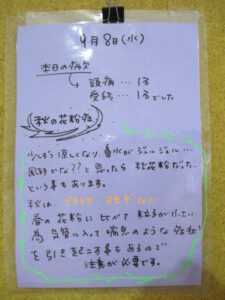 9月8日(水)
本日の病欠
頭痛…1名
受診…1名でした
秋の花粉症
少しずつ涼しくなり、鼻水がジュルジュル…
風邪かな??と思ったら 秋花粉だった…
という事もあります。
秋は、ブタクサ、ヨモギなど
春の花粉に比べて 粒子が小さい
為、気管に入って喘息のような症状
を引き起こす事もあるので
注意が必要です。